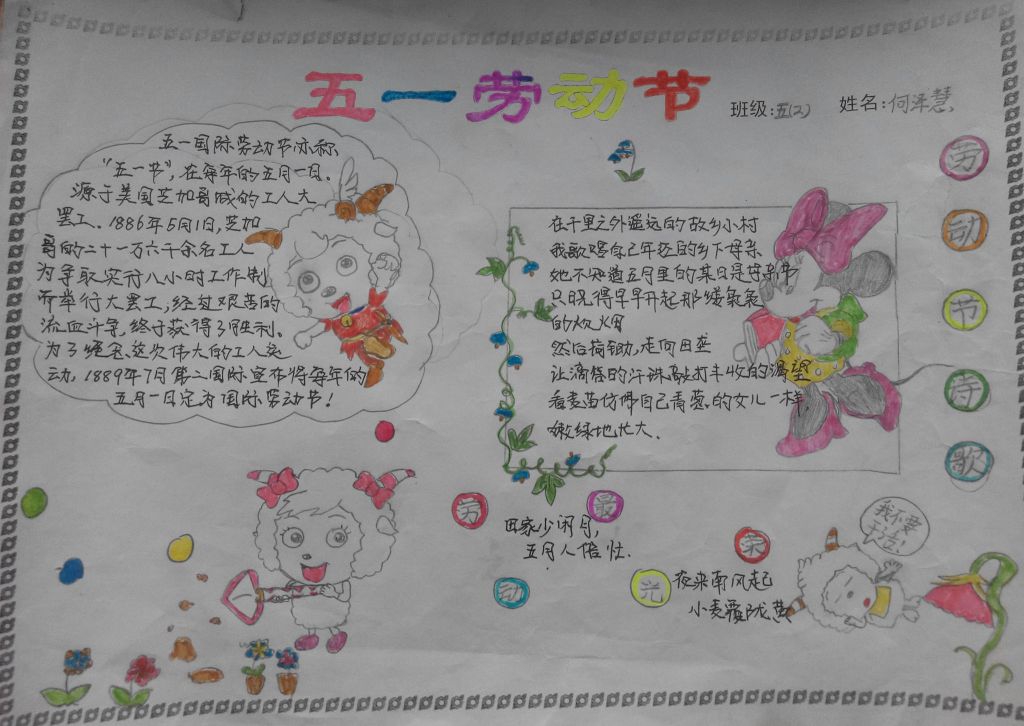 五一劳动节
班级:五(2) 姓名:何泽慧
五一国际劳动节亦称
“五一节”,在每年的五月一日。
源于美国芝加哥城的工人大
罢工。1886年5月1日,芝加
哥的二十一万六千余名工人
为争取实行八小时工作制
而举行大罢工,经过艰苦的
流血斗争,终于获得了胜利。
为了纪念这次伟大的工人运
动,1889年7月第二国际宣布将每年的
五月一日定为国际劳动节!
在千里之外遥远的故乡小村
我歌唱自己年轻的乡下母亲
她不知道五月里的某日是母亲节
只晓得早早开起那缕袅袅
的炊烟
然后荷锄,走向田垄
让滴落的汗珠敲打丰收的渴望
看麦苗仿佛自己青葱的女儿一样,
嫩绿地忙大.
劳
动
节
诗
歌
劳
动
最
光
荣
田家少闲月,
五月人倍忙.
夜来南风起
小麦覆陇黄
我不要
干活!